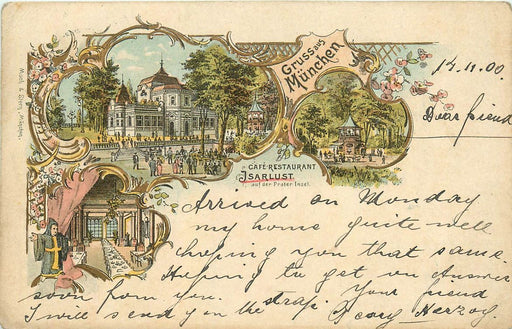 Gruss aus
München
14.11.00.
Dear friend
CAFÉ-RESTAURANT
ISARLUST.
auf der Prater Insel.
Arrived on Monday
my home quite well
hoping you that same.
Hoping to get an Answer
soon from you. Your friend
I will send you the
Herzog.